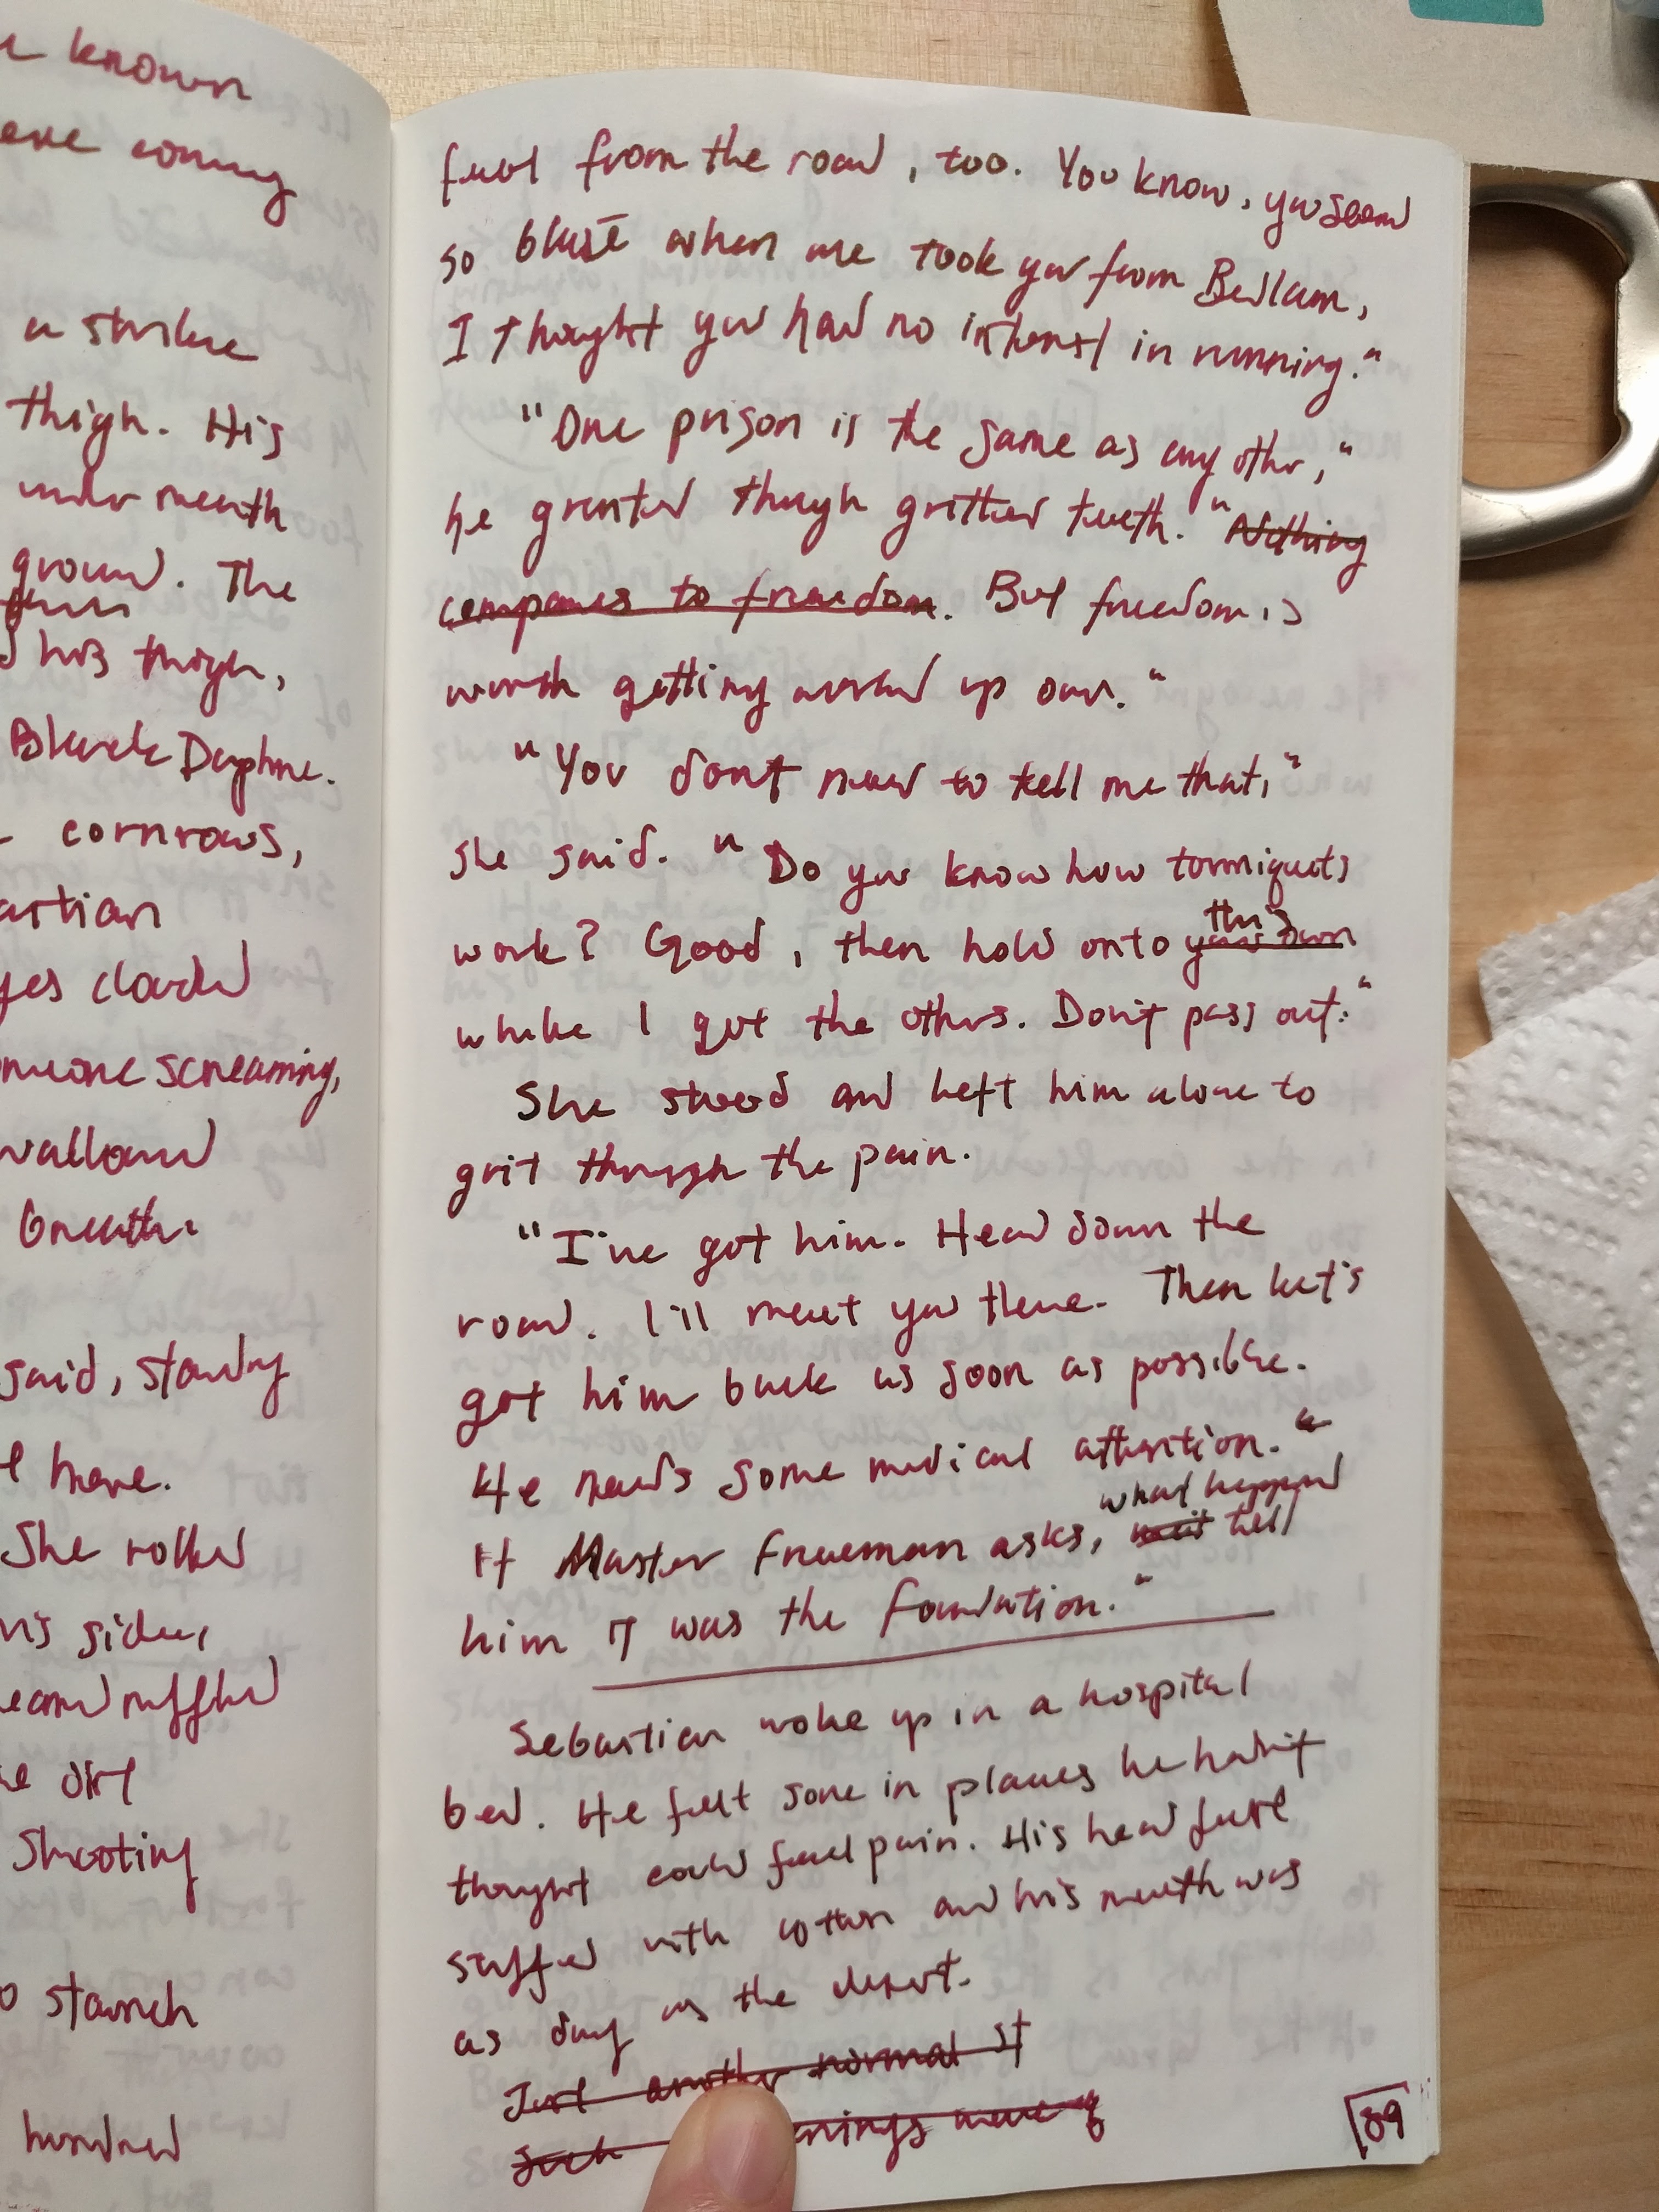 known
coming
a strike
thigh. His
underneath
ground. The
his thigh,
Black Daphne.
cornrows,
astian
yes clouded
meone screaming,
wallowed
breath.
said, standing
here.
She rolled
n's sides,
ruffled
dirt
Shooting
staunch
hundred
feet from the road, too. You know, you seemed
so blasé when we took you from Bedlam,
I thought you had no interest in running."
"One prison is the same as any other,"
he grunted through gritted teeth. "Nothing
compares to freedom. But freedom is
worth getting worked up over."
"You don't need to tell me that,"
she said. "Do you know how tourniquets
this
work? Good, then hold onto your own
while I get the others. Don't pass out."
She stood and left him alone to
grit through the pain.
"I've got him. Head down the
road. I'll meet you there. Then let's
get him back as soon as possible.
He needs some medical attention."
what happened
If Master Freeman asks, tell
him it was the Foundation."
Sebastian woke up in a hospital
bed. He felt sore in places he hadn't
thought could feel pain. His head felt
stuffed with cotton and his mouth was
as dry as the desert.
Just another normal st
Such nings
89